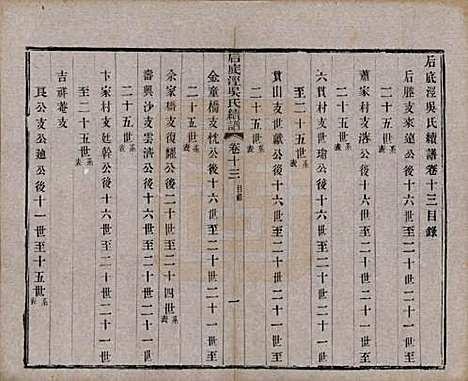 后底涇吳氏續譜卷十三目錄
后塍支來遠公後十六世至二十一世
至二十五世系表
蕭家村支落公後十六世至二十一世
二十五世系表
六貫村支世瑜公後十六世至二十一世
至二十五世系表
貫山支世獻公後十六世至二十一世
二十五世系表
后底涇吳氏續譜
卷十三
目錄
一
金童橋支忱公後十六世至二十一世
二十五世系表
余家橋支復耀公後二十世至二十四世系表
壽興沙支雲濟公後十六世至二十一世
二十五世系表
卞家村支廷幹公後十六世至二十一世
至二十五世系表
吉祥菴支
良公支公迪公後十一世至十五世系表